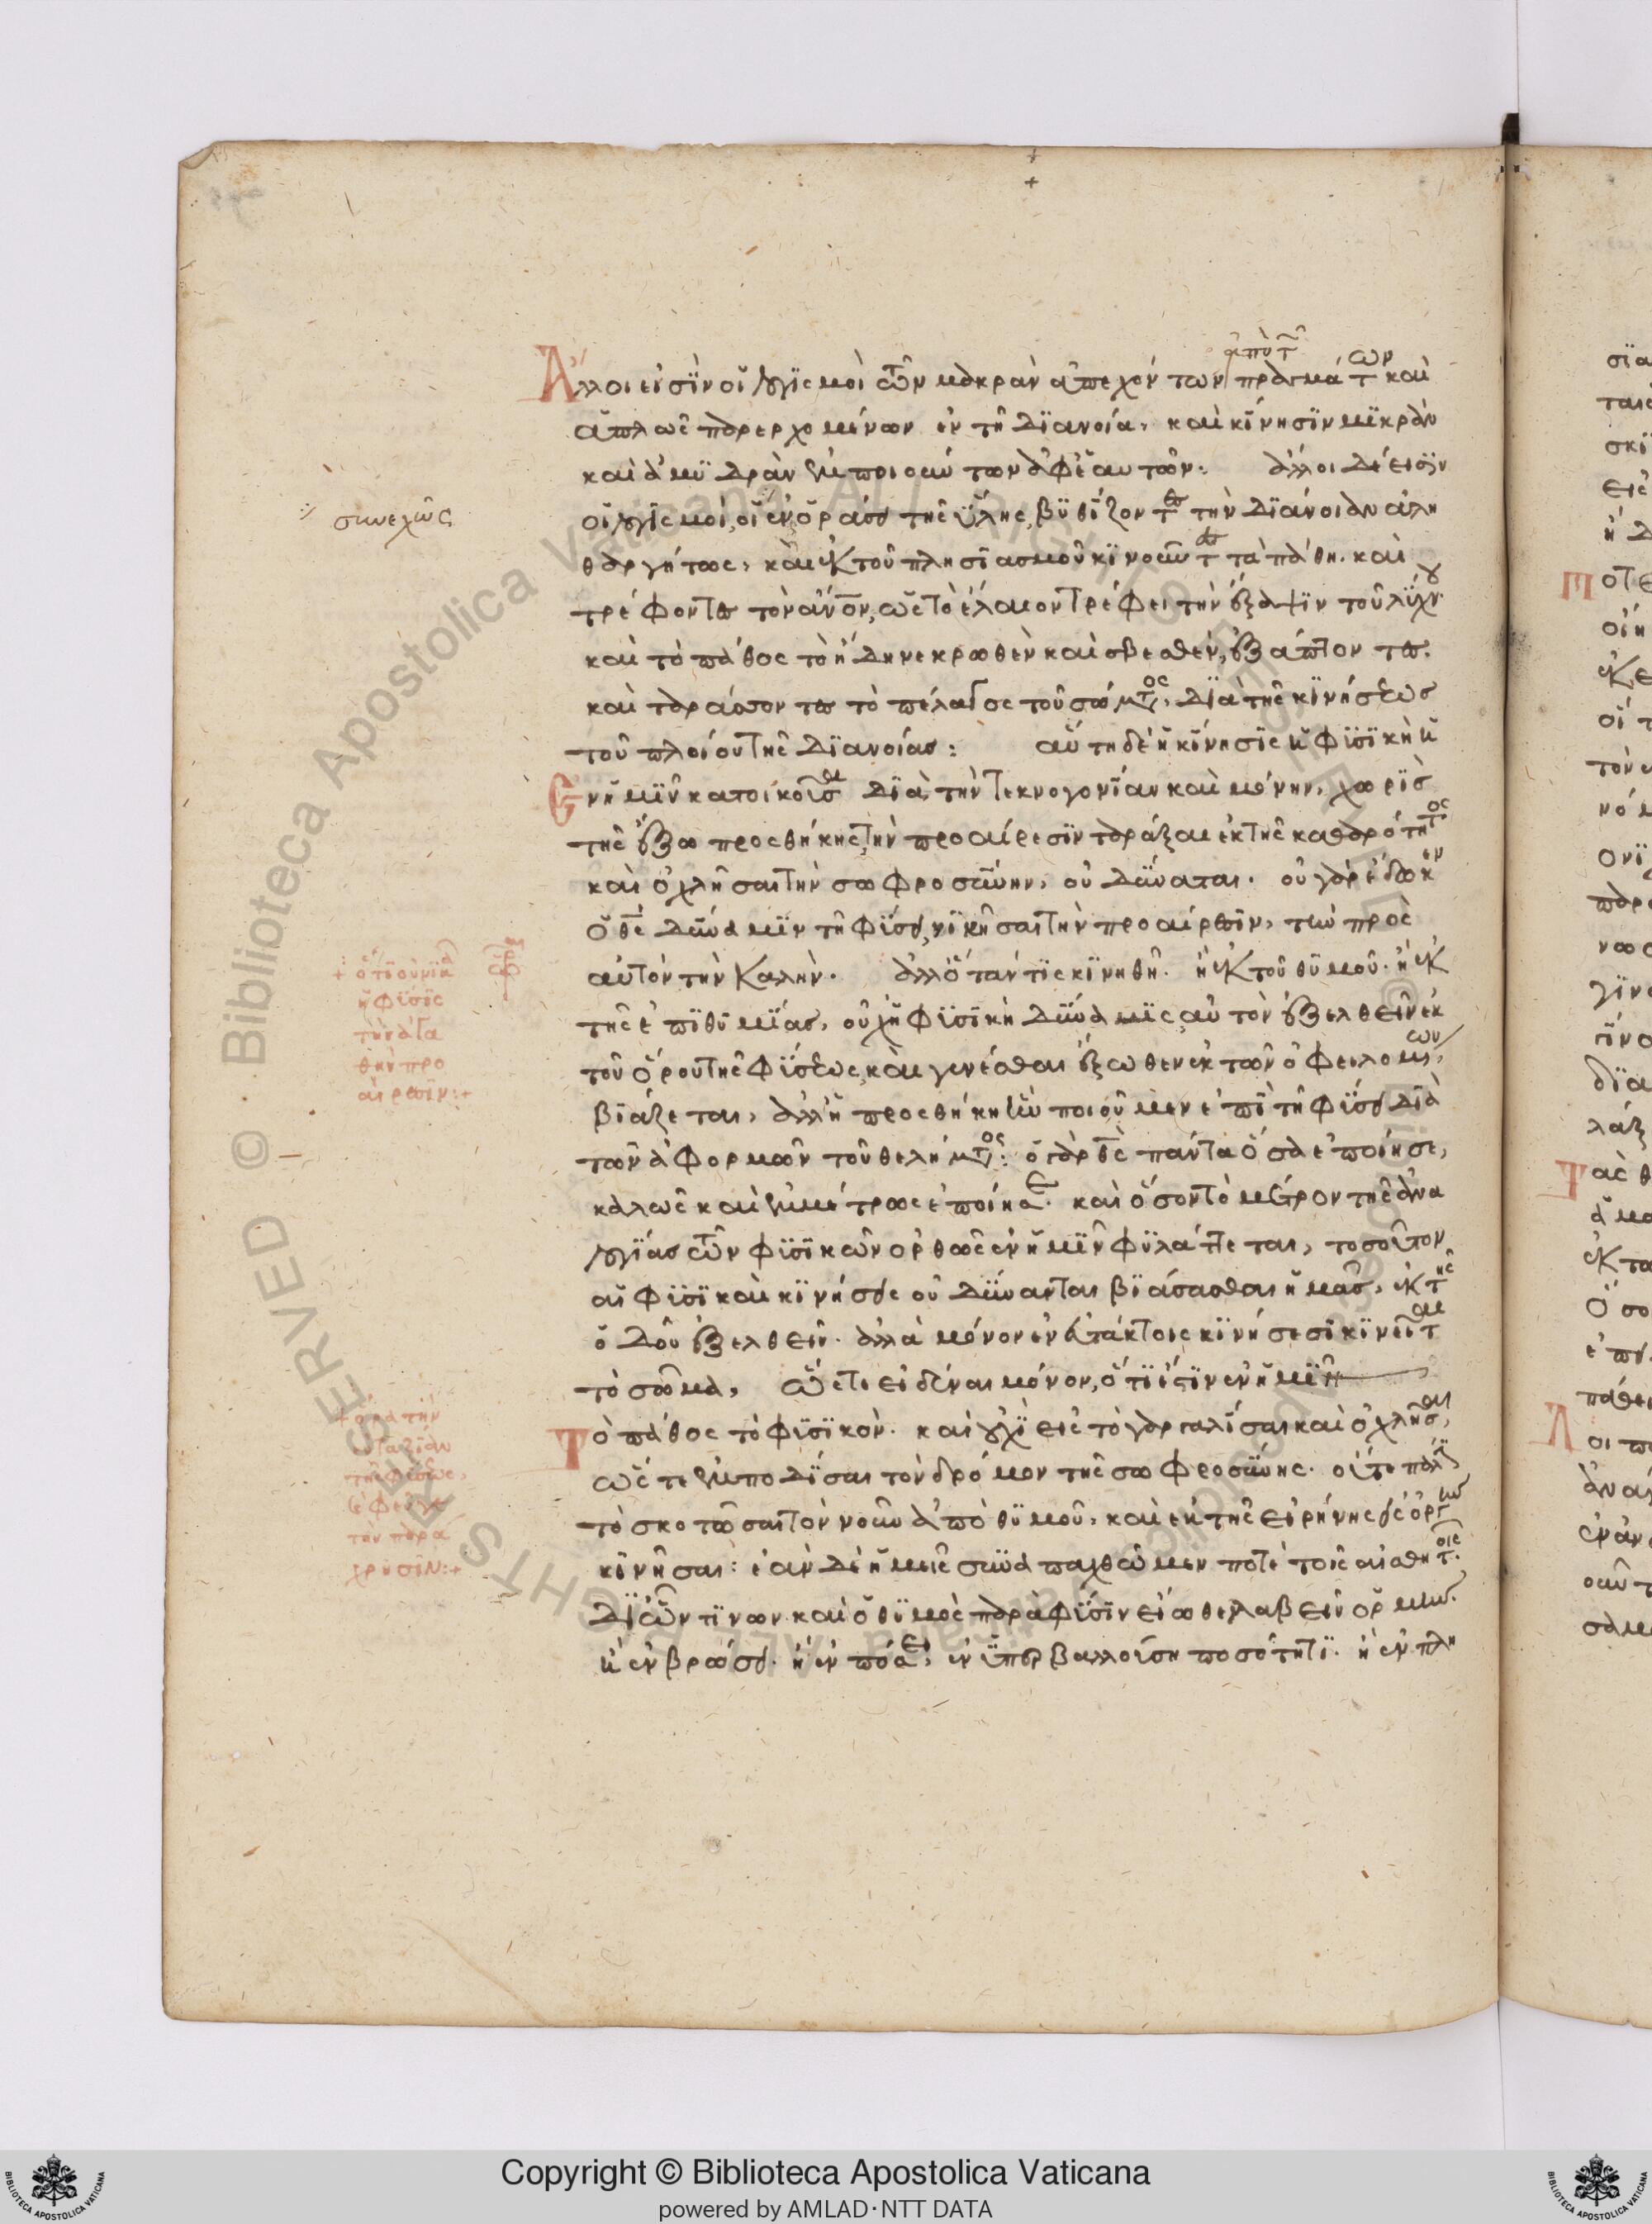 ἀπὸ τ
Ἄλλοι εἰσὶν οἱ λογισμοὶ τῶν μακρὰν ἀπεχόντων πραγμάτων καὶ
ἁπλῶς παρερχομένων ἐν τῇ διανοία, καὶ κίνησιν μικρὰν
καὶ ἀμυδρὰν ἐμποιούντων ἀφ' ἑαυτῶν: ἄλλοι δέ εἰσιν
οἱ λογισμοὶ, οἱ ἐν ὁράσει τῆς ὕλης, βυθίζοντες τὴν διάνοιαν ἀλη
θαργήτως, καὶ ἐκ τοῦ πλησιασμοῦ κινοῦντες τὰ πάθη. καὶ
τρέφοντες τὸν ἄνον, ὡς τὸ ἔλαιον τρέφει τὴν ἔξαψιν τοῦ λύχνου
καὶ τὸ πάθος τὸ ἤδη νεκρωθὲν καὶ σβεσθὲν, ἐξάπτοντες.
καὶ ταράσσοντες τὸ πέλαγος τοῦ σώματος, διὰ τῆς κινήσεως
τοῦ πλοίου τῆς διανοίας: αὕτη δὲ ἡ κίνησις ἡ φυσικὴ ἡ
ἐν ἡμῖν κατοικοῦσα διὰ τὴν τεκνογονίαν καὶ μόνην, χωρὶς
τῆς ἔξω προσθήκης τὴν προαίρεσιν ταράξαι ἐκ τῆς καθαρότητος
καὶ ὀχλῆσαι τὴν σωφροσύνην, οὐ δύναται. οὐ γὰρ ἔδωκεν
ὁ θς δύναμιν τῇ φύσει, νικῆσαι τὴν προαίρεσιν, τὴν πρὸς
αὐτὸν τὴν καλήν. ἀλλ' ὅταν τις κινηθῇ. ἢ ἐκ τοῦ θυμοῦ. ἢ ἐκ
τῆς ἐπιθυμίας, οὐχ ἡ φυσικὴ δύναμις αὐτὸν ἐξελθεῖν ἐκ
τοῦ ὅρου τῆς φύσεως, καὶ γενέσθαι ἔξωθεν ἐκ τῶν ὀφειλομένων
βιάζεται, ἀλλ' ἡ προσθήκη ἣν ποιοῦμεν ἐπὶ τῇ φύσει διὰ
τῶν ἀφορμῶν τοῦ θελήματος: ὁ γὰρ θς πάντα ὅσα ἐποίησε,
καλῶς καὶ ἐμμέτρως ἐποίησε. καὶ ὅσον τὸ μέτρον τῆς ἀνα
λογίας τῶν φυσικῶν ὀρθῶς ἐν ἡμῖν φυλάττεται, τοσοῦτον
αἱ φυσικαὶ κινήσεις οὐ δύνανται βιάσασθαι ἡμᾶς, ἐκ τῆς
ὁδοῦ ἐξελθεῖν. ἀλλὰ μόνον ἐν εὐτάκτοις κινήσεσι κινεῖται
τὸ σῶμα, ὥστε εἰδέναι μόνον, ὅτι ἐστὶν ἐν ἡμῖν
τὸ πάθος τὸ φυσικὸν. καὶ οὐχὶ εἰς τὸ γαργαλίσαι καὶ ὀχλῆσαι,
ὥστε ἐμποδίσαι τὸν δρόμον τῆς σωφροσύνης. οὔτε πάλιν
τὸ σκοτῶσαι τὸν νοῦν ἀπὸ θυμοῦ, καὶ ἐκ τῆς εἰρήνης εἰς ὀργὴν
κινῆσαι: ἐὰν δὲ ἡμεῖς συναπαχθῶμεν ποτὲ τοῖς αἰσθητοῖς.
δι' ὧν τινων καὶ ὁ θυμὸς παρὰ φύσιν εἴωθε λαβεῖν ὁρμὴν.
ἢ ἐν βρώσει. ἢ ἐν πόσει, ἐν ὑπερβαλλούση ποσότητι. ἢ ἐν πλη
συνεχῶς
ὅτι οὐ νικᾶ
ἡ φύσις
τὴν ἀγα
θὴν προ
αίρεσιν:+
+ ὅρα τὴν
εὐταξίαν
τῆς φύσεως,
τὴν παρά
χρησιν:+